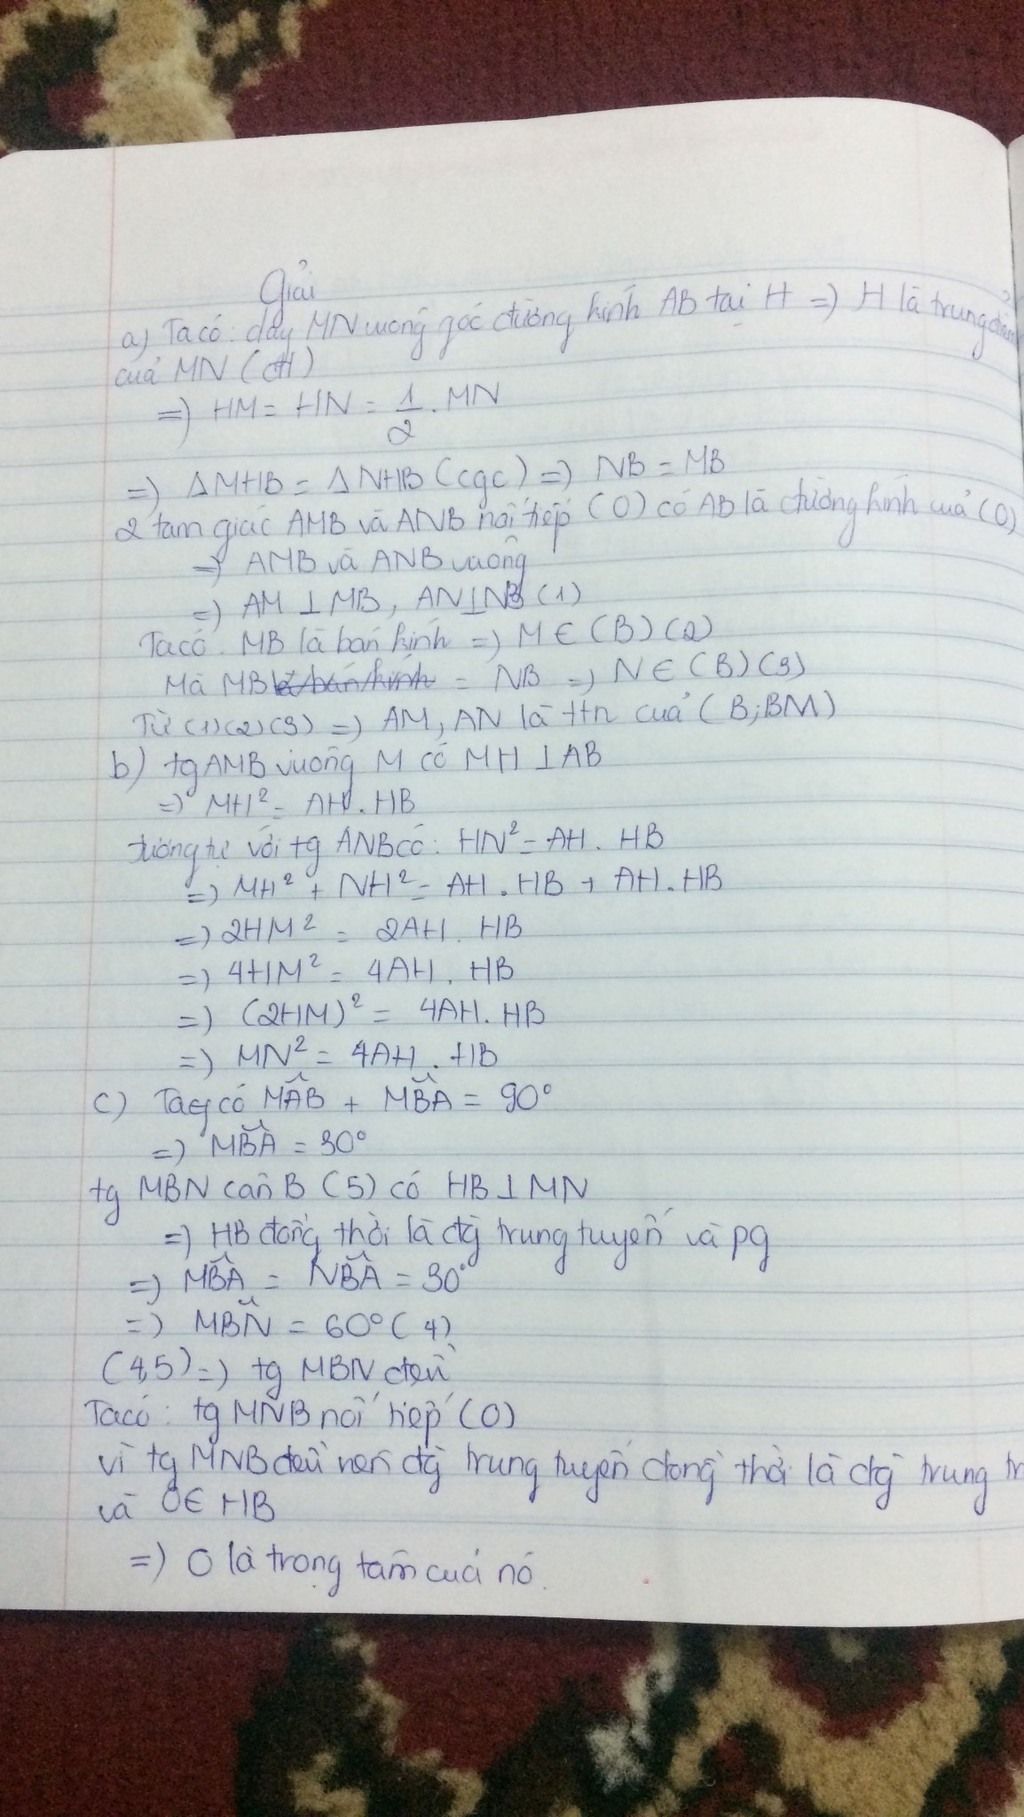 Giải
a) Ta có: dây MN vuông góc đường kính AB tại H => H là trung điểm
của MN (đl)
=> HM = HN = 1/2 . MN
=> ΔMHB = ΔNHB (cgc) => NB = MB
2 tam giác AMB và ANB nội tiếp (O) có AB là đường kính của (O)
=> AMB và ANB vuông
=> AM ⊥ MB, AN ⊥ NB (1)
Ta có: MB là bán kính => M ∈ (B) (2)
Mà MB = NB => N ∈ (B) (3)
Từ (1)(2)(3) => AM, AN là ttn của (B;BM)
b) tg AMB vuông M có MH ⊥ AB
=> MH² = AH . HB
tương tự với tg ANB có: HN² = AH . HB
=> MH² + NH² = AH . HB + AH . HB
=> 2HM² = 2AH . HB
=> 4HM² = 4AH . HB
=> (2HM)² = 4AH . HB
=> MN² = 4AH . HB
c) Ta có MÂB + MB̂A = 90°
=> MB̂A = 30°
tg MBN cân B (5) có HB ⊥ MN
=> HB đồng thời là đg trung tuyến và pg
=> MB̂A = NB̂A = 30°
=> MB̂N = 60° (4)
(4,5) => tg MBN đều
Ta có: tg MNB nội tiếp (O)
vì tg MNB đều nên đg trung tuyến đồng thời là đg trung tr
và O ∈ HB
=> O là trọng tâm của nó.